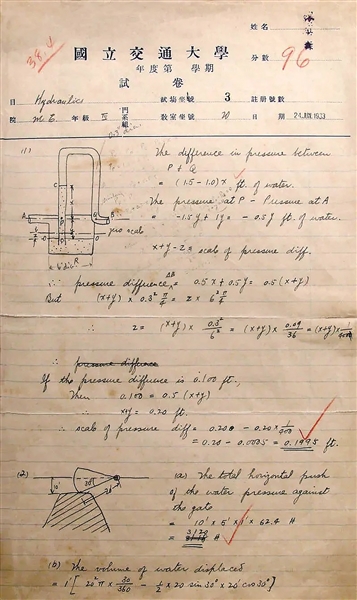 姓名
38.4
國立交通大學
分數 96
年度第 學期
試卷
目 Hydraulics 試場坐號 3 註冊號數
院 M.E. 年級 IV 門系組 教室坐號 20 日期 24 JUN 1933
(1) The difference in pressure between
P & Q
= (1.5-1.0)x ft. of water.
The pressure at P - Pressure at A
= -1.5y + 1y = -0.5y ft. of water.
C
A
B
P
Q
R
zero scale
6" dia.
x+y-z = scale of pressure diff.
∴ pressure difference AB = 0.5x + 0.5y = 0.5(x+y)
But (x+y) × 0.3² π/4 = z × 6² π/4
∴ z = (x+y) × 0.3²/6² = (x+y) × 0.09/36 = (x+y) × 1/400
∴ pressure difference
If the pressure difference is 0.100 ft.,
Then 0.100 = 0.5(x+y)
x+y = 0.20 ft.
∴ scale of pressure diff = 0.200 - 0.20 × 1/400
= 0.20 - 0.0005 = 0.1995 ft.
(2) (a) The total horizontal push
of the water pressure against
the gate
= 10' × 5' × 1' × 62.4 #
= 3120 #
10'
20'
(b) The volume of water displaced
= 1' [ 20² π × 30/360 - 1/2 × 20 sin 30° × 20 cos 30° ]